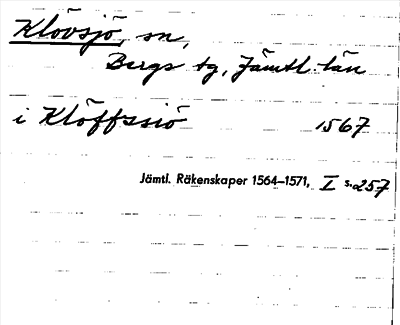 Klövsjö, sn,
Bergs tg, Jämtl. län
i Klöffssiö 1567
Jämtl. Räkenskaper 1564–1571, I s.257